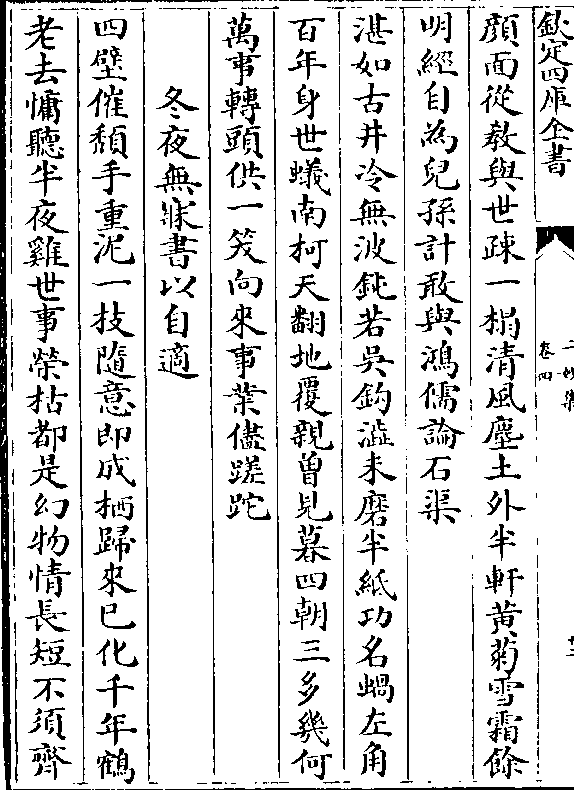 欽定四庫全書
二妙集
卷四
十二
顔面從教與世踈一榻清風塵土外半軒黄菊雪霜餘
明經自為兒孫計敢與鴻儒論石渠
湛如古井冷無波鈍若吳鈎澁未磨半紙功名蝸左角
百年身世蟻南柯天翻地覆親曽見暮四朝三多幾何
萬事轉頭供一笑向來事業儘蹉跎
冬夜無寐書以自適
四壁催頽手重泥一技隨意即成栖歸來已化千年鶴
老去慵聽半夜雞世事榮枯都是幻物情長短不須齊